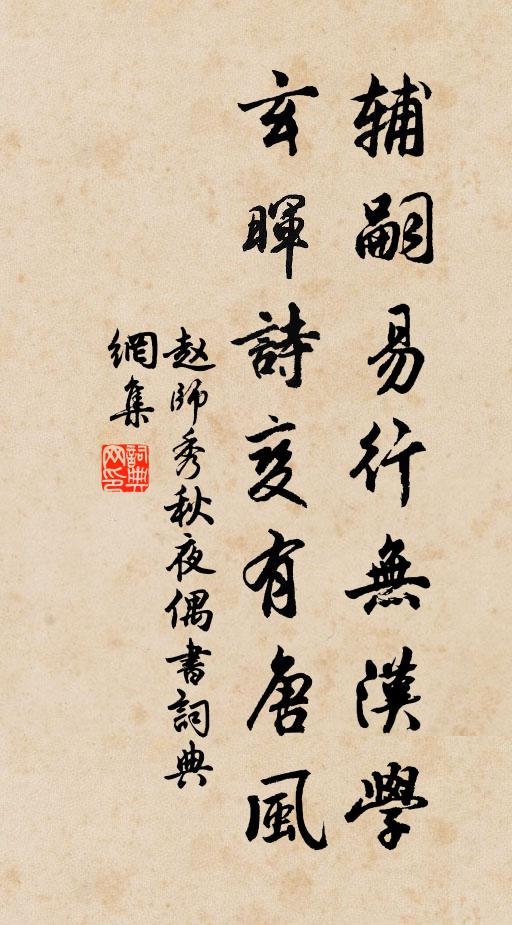 辅嗣易行無漢學
玄暉詩变有唐風
赵師秀秋夜偶書詞典
網集
詞典
网印